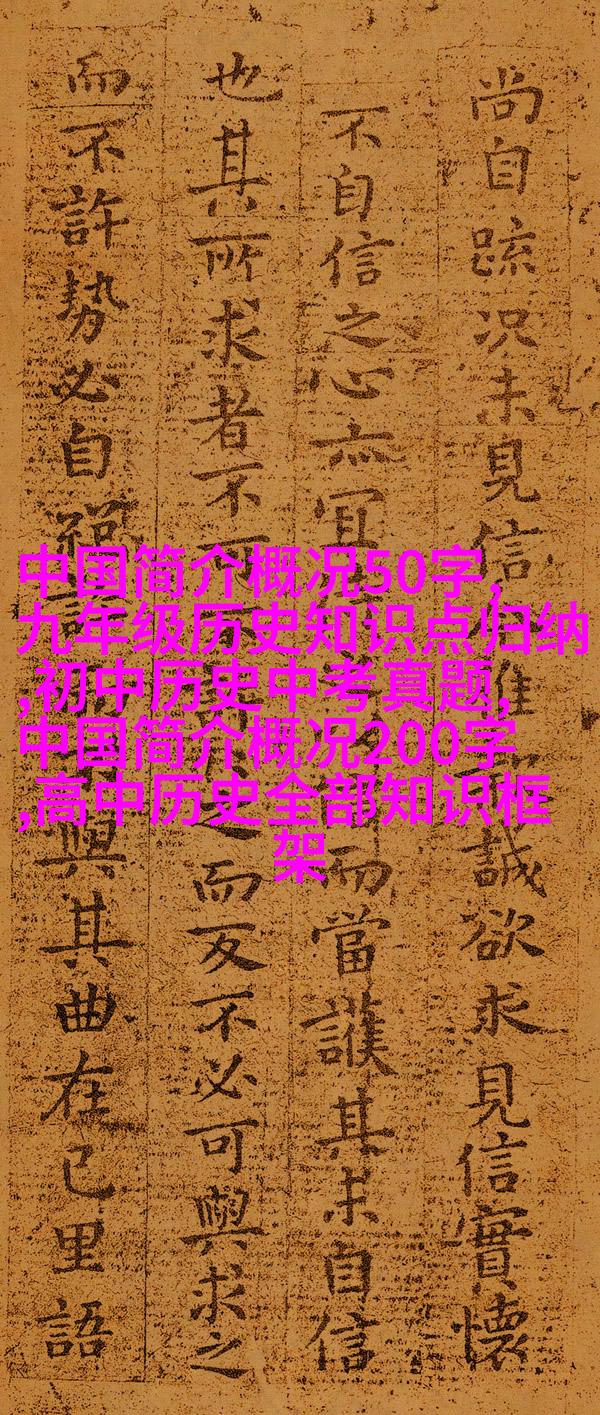 尚自疏況未見信雖誠欲求見信實懷
不自信之心亦宜而當護其未自信
也其所求者不可之而反不必可與求之
而不許勢必自與其曲在己里語
中国简介概况50字,
九年级历史知识点归纳
,初中历史中考真题,
中国简介概况200字
,高中历史全部知识框
架